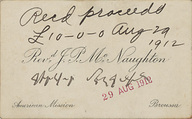 Recd proceeds
£10-0-0 Aug 29
1912
Revd. J. P. McNaughton
29 AUG 1912
American Mission